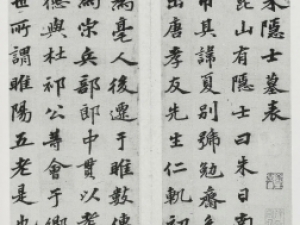 朱隱士墓表
崑山有隱士曰朱日南
市其諱夏別號勉齋
出唐孝友先生仁軌初
為亳人後遷于睢數傳
為宋兵部郎中貫以耆
德與杜祁公等會于鄉
世所謂睢陽五老是也